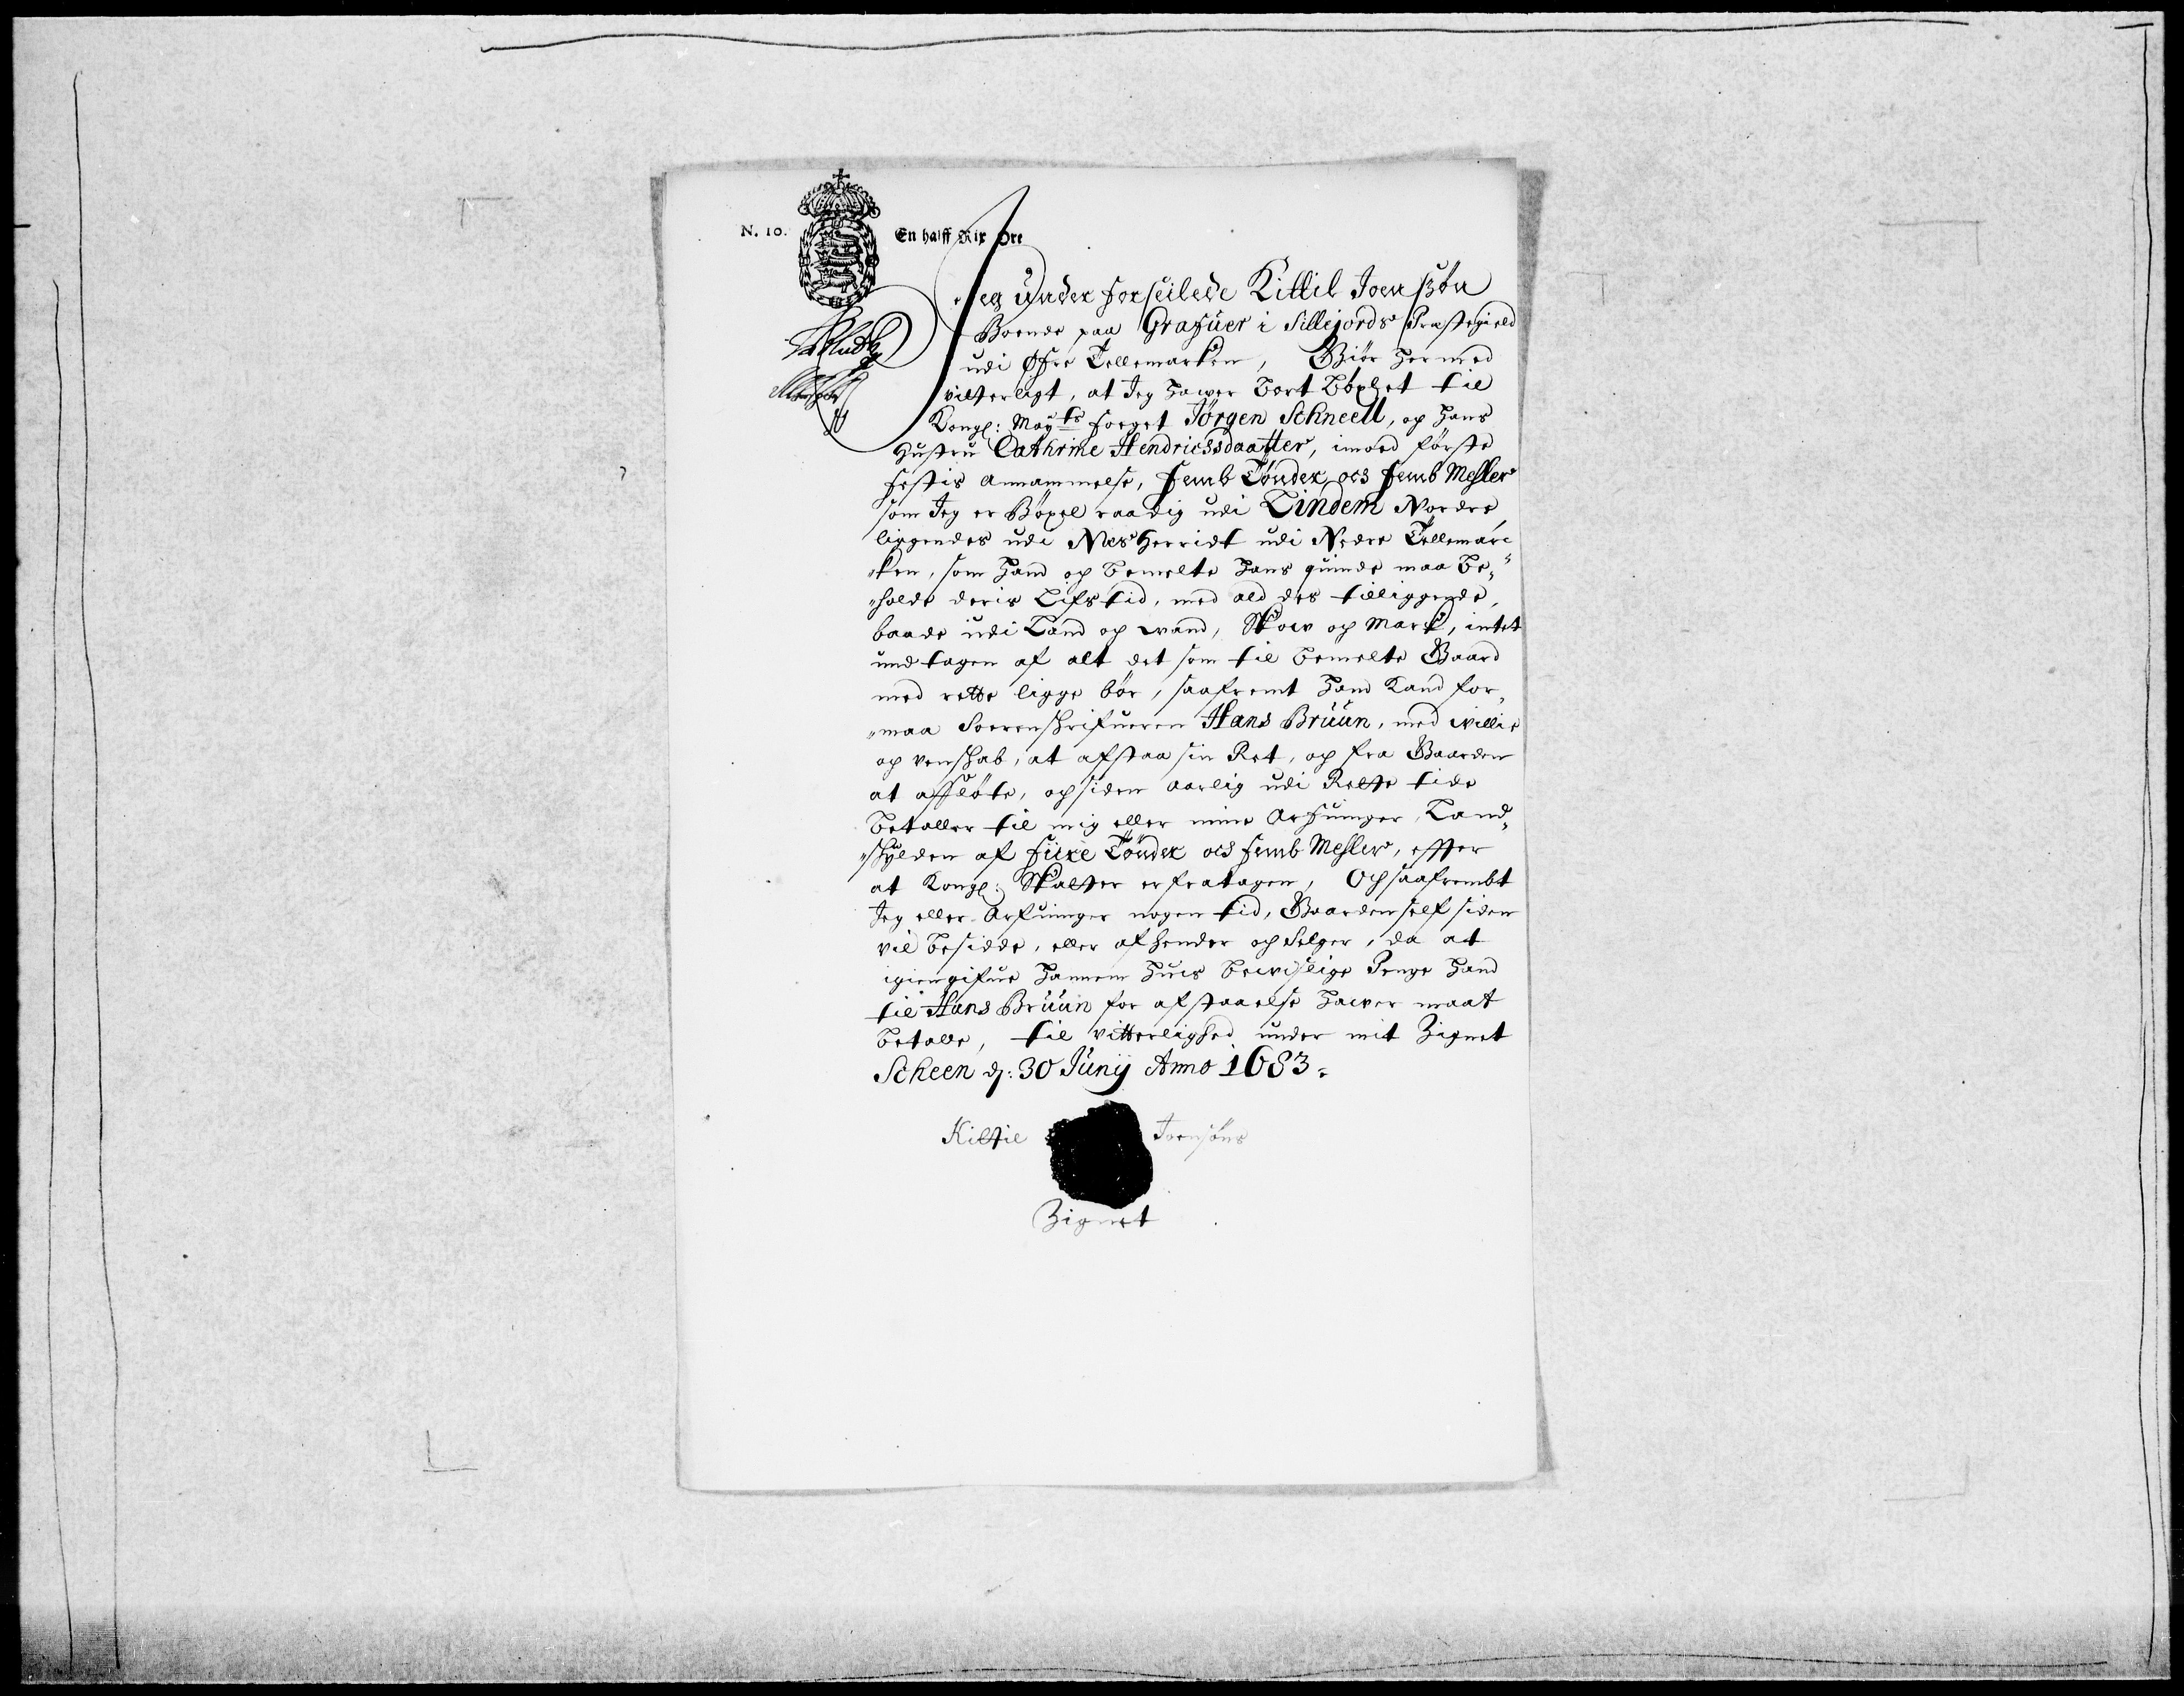 N. 10. En halff Rix Ort
Jeg Under forseilede Kittil Joenßön
Boende paa Grafuer i Sillejords Præstegield
udi Øfre Tellemarken, Giör hermed
vitterligt, at Jeg hawer Bort Böxlet til
Kongl: Mayts foeget Jörgen Schneell, og hans
Hustru Cathrine Hendricssdaatter, imod förste
festis Annammelse, femb Tönder ocs femb Mesler
som Jeg er Böxel raadig udi Lindem Nordre
liggendes udi Nes Herridt udi Nedre Tellemarc
"ken, som hand og bemelte hans quinde maa be„
"holde deris Lifs tid, med ald des tilliggende,
baade udi Land og wand, Skow og Marck, intet
undtagen af alt det som til bemelte Gaard
med rette ligge bör, saafremt hand kand for„
"maa Sorenskrifueren Hans Brüün, med willie
og venskab, at afstaa sin Ret, og fra Gaarden
at afflötte, og siden aarlig udi Rette tide
betaller til mig eller mine Arfuinger, Land„
"skylden af fiire Tönder ocs femb Mesler, effter
at Kongl: Skatter erfratagen, Och saafrembt
Jeg eller Arfuinger nogen tid, Gaarden self siden
vil besidde, eller afhender og Selger, da at
igiengifue hannem huis bewislige Penge hand
til Hans Brüün for afstaaelse hawer maat
betalle, til vitterlighed under mit Zignet
Scheen d: 30 Junij Anno 1683.
Kittil Joensöns
Zignet